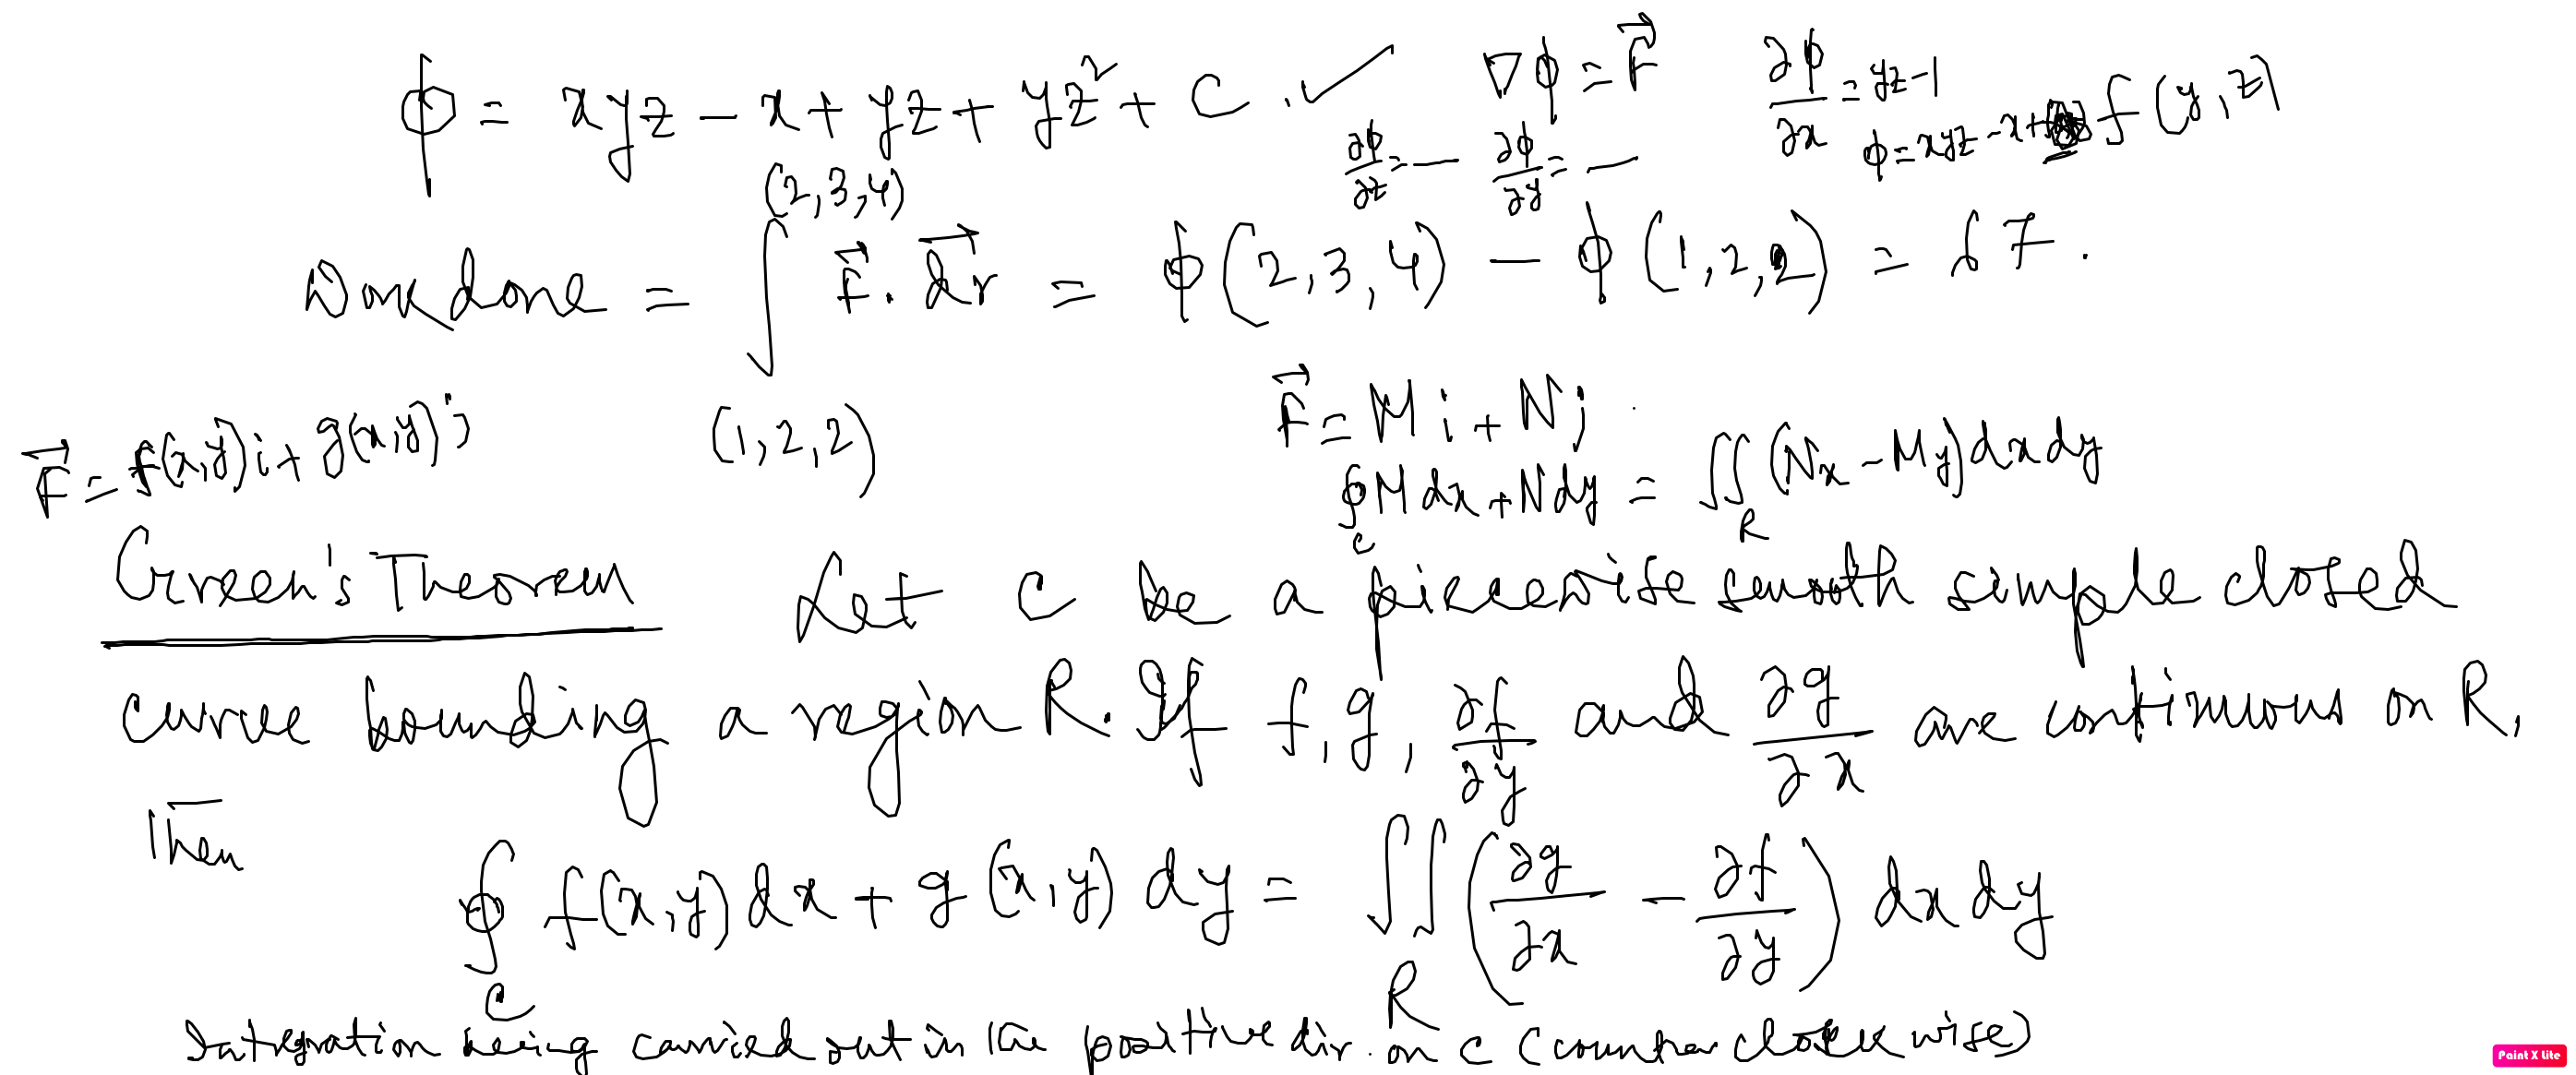 ϕ = xyz − x + yz + yz² + C . ✓
∇ϕ = F⃗
∂ϕ/∂x = yz−1
ϕ = xyz − x + f(y,z)
∂ϕ/∂z = — ∂ϕ/∂y = —
Work done = ∫_(1,2,2)^(2,3,4) F⃗ . dr⃗ = ϕ(2,3,4) − ϕ(1,2,2) = 67.
F⃗ = f(x,y)i + g(x,y)j
F⃗ = Mi + Nj
∮_C M dx + N dy = ∬_R (Nx − My) dx dy
Green's Theorem Let C be a piecewise smooth simple closed
curve bounding a region R. If f, g, ∂f/∂y and ∂g/∂x are continuous on R,
Then
∮_C f(x,y) dx + g(x,y) dy = ∬_R (∂g/∂x − ∂f/∂y) dx dy
Integration being carried out in the positive dir. on C (counter clockwise)
Paint X Lite